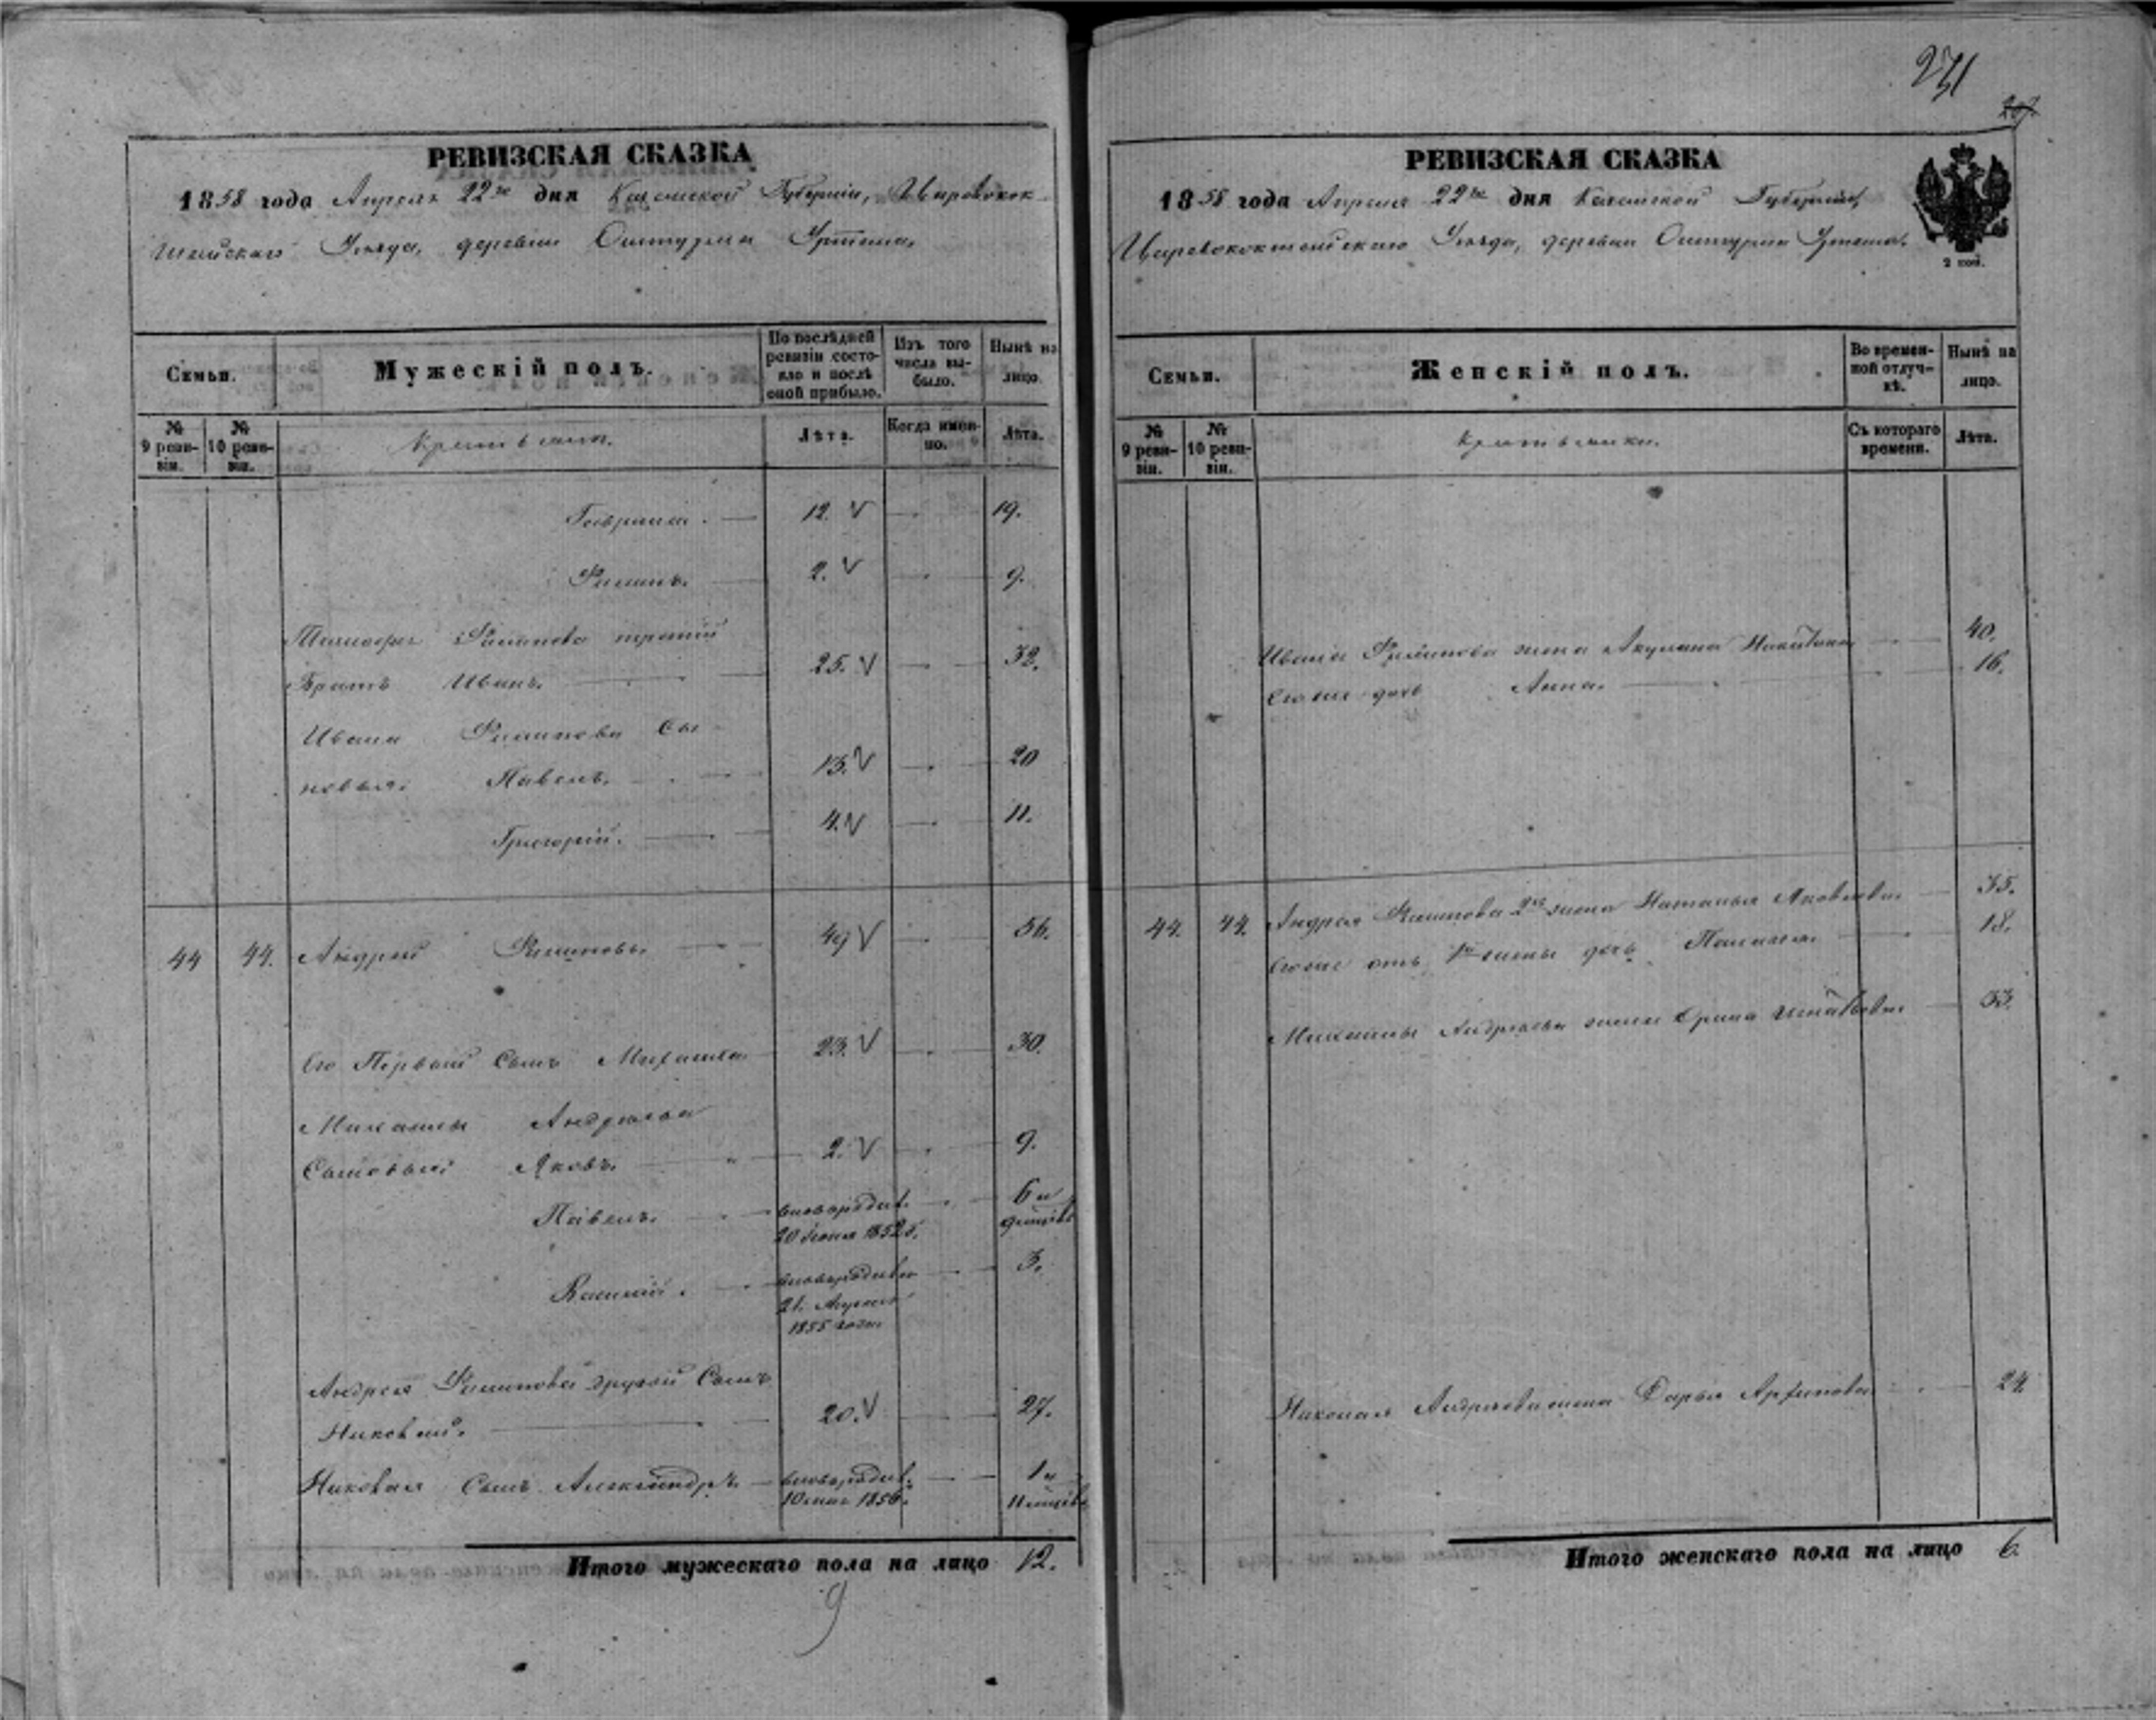 РЕВИЗСКАЯ СКАЗКА
1858 года Апреля 22го дня Казанской Губернiи, Царевокок-
шайскаго Уѣзда, деревни Ошутурма
Семьи.
Мужескiй полъ.
По послѣдней ревизiи состо-яло и послѣ оной прибыло.
Изъ того числа вы-было.
Нынѣ на лицо.
№ 9 реви-зiи.
№ 10 реви-зiи.
Лѣта.
Когда имен-но.
Лѣта.
Гаврила. 12. 19.
Филипъ. 2. 9.
Филипова третiй
Братъ Иванъ. 25. 32.
Ивана Филипова сы-
новья: Павелъ. 13. 20
Григорiй. 4. 11.
44 44. Андрей Филиповъ. 49 56.
Его Первый Сынъ Михаила 23. 30.
Михаилы Андреева
Сыновья: Яковъ. 2. 9.
Павелъ. 6 и
20 Iюня 1852 г.
Василiй. 3.
21. Апреля
1855 года
Андрея Филипова другой Сынъ
Николай. 20. 27.
Николая Сынъ Александръ 1 и
10 мая 1856 г.
Итого мужескаго пола на лицо 12.
9
231
207
РЕВИЗСКАЯ СКАЗКА
1858 года Апреля 22го дня Казанской Губернiи,
Царевококшайскаго Уѣзда, деревни Ошутурма
2 коп.
Семьи.
Женскiй полъ.
Во времен-ной отлуч-кѣ.
Нынѣ на лицо.
№ 9 реви-зiи.
№ 10 реви-зiи.
Съ котораго времени.
Лѣта.
Ивана Филипова жена Акулина 40.
Его же дочь Анна. 16.
44. 44. Андрея Филипова 2я жена Наталья Яковлева 35.
Его же отъ 1й жены дочь 18.
Михаилы Андреева жена Орина 33.
Николая Андреева жена Дарья Архипова 24
Итого женскаго пола на лицо 6.